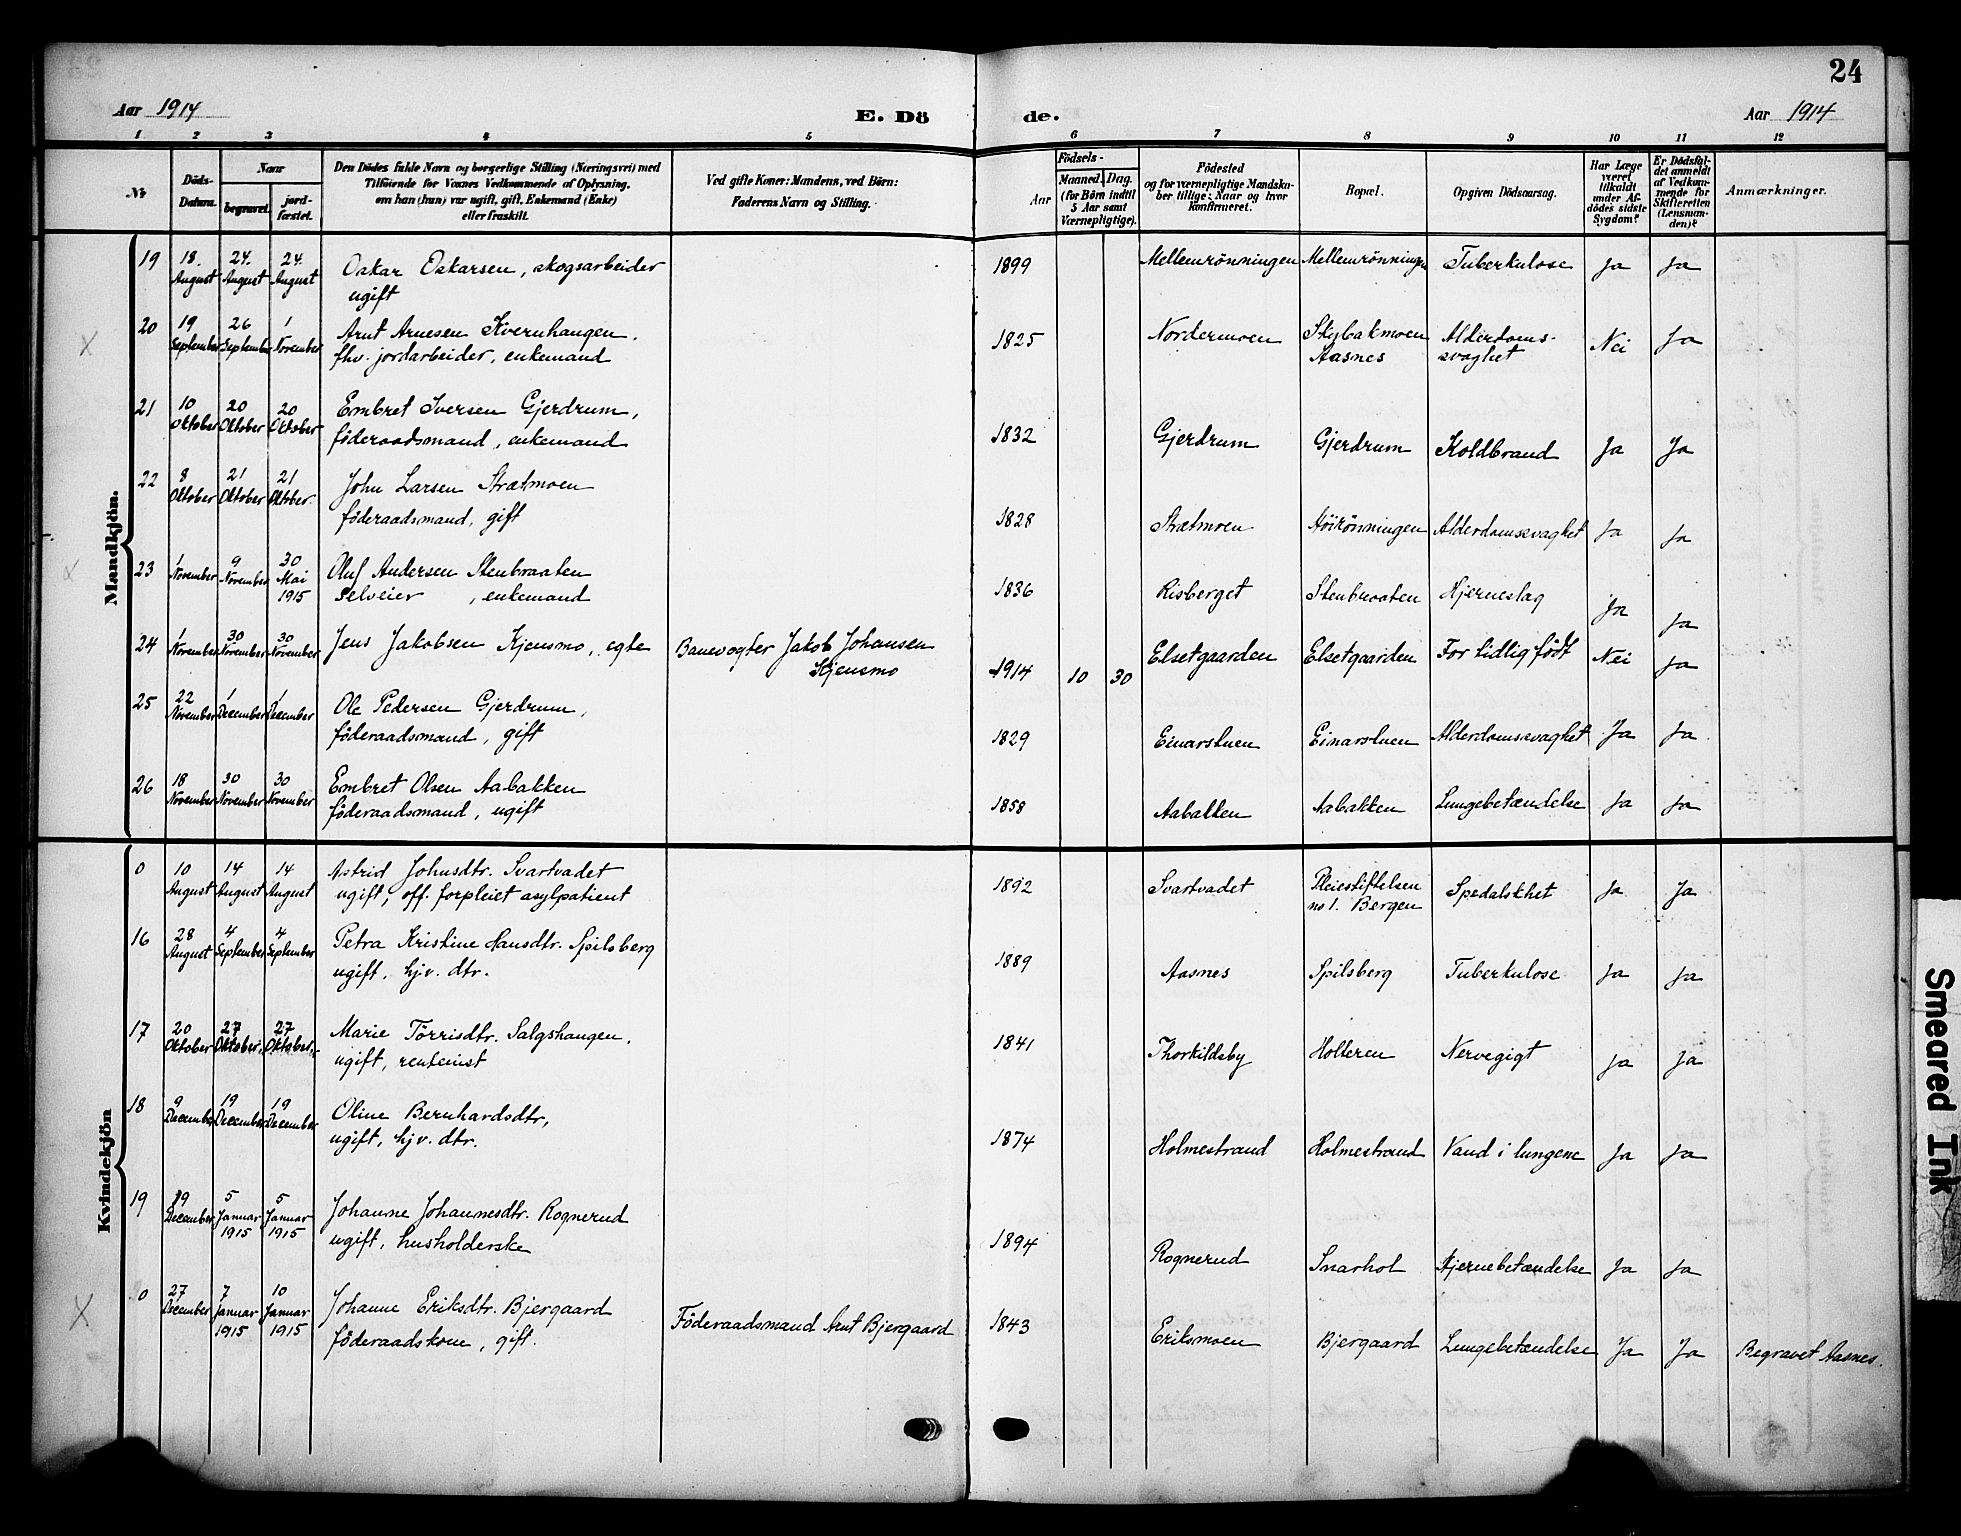 24
Aar 1914
E. Dö
de.
Aar 1914
1 2 3 4 5 6 7 8 9 10 11 12
No
Döds-
Datum.
Naar
begravet.
jord-
fæstet.
Den Dödes fulde Navn og borgerlige Stilling (Næringsvei) med
Tilföiende for Voxnes Vedkommende af Oplysning,
om han (hun) var ugift, gift, Enkemand (Enke)
eller fraskilt.
Ved gifte Koner: Mandens, ved Börn:
Faderens Navn og Stilling.
Födsels-
Aar
Maaned. Dag.
(for Börn indtil
5 Aar samt
Værnepligtige).
Födested
og for værnepligtige Mandska-
ber tillige: Naar og hvor
konfirmeret.
Bopæl.
Opgiven Dödsaarsag.
Har Læge
været
tilkaldt
under Af-
dödes sidste
Sygdom?
Er Dödsfal-
det anmeldt
af Vedkom-
mende for
Skifteretten
(Lensman-
den)?
Anmærkninger.
Mandkjön.
19 18. August 24. August 24. August Oskar Oskarsen, skogsarbeider 1899 Mellemrönningen Mellemrönningen Tuberkulose Ja Ja
ugift
20 19 September 26 September 1 November Arnt Arnesen Kvernhaugen, 1825 Nordermoen Skybakmoen Alderdoms- Nei Ja
fhv. jordarbeider, enkemand Aasnes svaghet
21 10 Oktober 20 Oktober 20 Oktober Embret Iversen Gjerdrum, 1832 Gjerdrum Gjerdrum Koldbrand Ja Ja
föderaadsmand, enkemand
22 8 Oktober 21 Oktober 21 Oktober. John Larsen Strætmoen 1828 Strætmoen Höirönningen Alderdomssvaghet Ja Ja
föderaadsmand, gift
23 1 November 9 November 30 Mai 1915 Oluf Andersen Stenbraaten 1836 Risberget Stenbraaten Hjerneslag Ja Ja
selveier, enkemand
24 1 November 30 November 30 November Jens Jakobsen Kjensmo, egte Banevogter Jakob Johansen 1914 10 30 Elsetgaarden Elsetgaarden For tidlig födt Nei Ja
Kjensmo
25 22 November 1 December 1 December Ole Pedersen Gjerdrum, 1829 Einarstuen Einarstuen Alderdomssvaghet Ja Ja
föderaadsmand, gift
26 18 November 30 November 30 November Embret Olsen Aabakken 1858 Aabakken Aabakken Lungebetændelse Ja Ja
föderaadsmand, ugift
Kvindekjön
0 10 August 14 August 14 August Astrid Johnsdtr. Svartvadet 1892 Svartvadet Pleiestiftelsen Spedalskhet Ja Ja
ugift, off. forpleiet asylpatient no 1. Bergen
16 28 August 4 September 4 September Petra Kristine Hansdtr. Spilsberg 1889 Aasnes Spilsberg Tuberkulose Ja Ja
ugift, hjv. dtr.
17 20 Oktober 27 Oktober. 27 Oktober. Marie Törrisdtr. Salgshaugen, 1841 Thorkildsby Holteren Nervegigt Ja Ja
ugift, rentenist
18 9 December 19 December 19 December Oline Bernhardsdtr, 1874 Holmestrand Holmestrand Vand i lungene Ja Ja
ugift, hjv. dtr.
19 19 December 5 Januar 1915 5 Januar 1915 Johanne Johannesdtr. Rognerud 1894 Rognerud Snarhol Hjernebetændelse Ja Ja
ugift, husholderske
0 27 December 7 Januar 1915 10 Januar 1915 Johanne Eriksdtr. Bjergaard Föderaadsmand Arnt Bjergaard 1843 Eriksmoen Bjergaard Lungebetændelse Ja Ja Begravet Aasnes.
föderaadskone, gift.
Smeared Ink